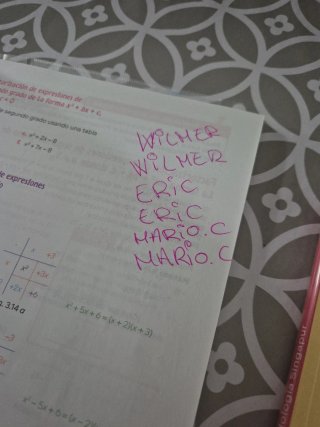 torización de expresiones de
do grado de la forma x² + bx + c,
segundo grado usando una tabla
x² + 7x - 8
de expresiones
WILMER
WILMER
ERIC
ERIC
MARIO.C
MARIO.C
x +3
x x² +3x
+2x +6
3.14 a
x² + 5x + 6 = (x + 2)(x + 3)
-3
x² - 5x + 6 = (x - 2)
ología singapur